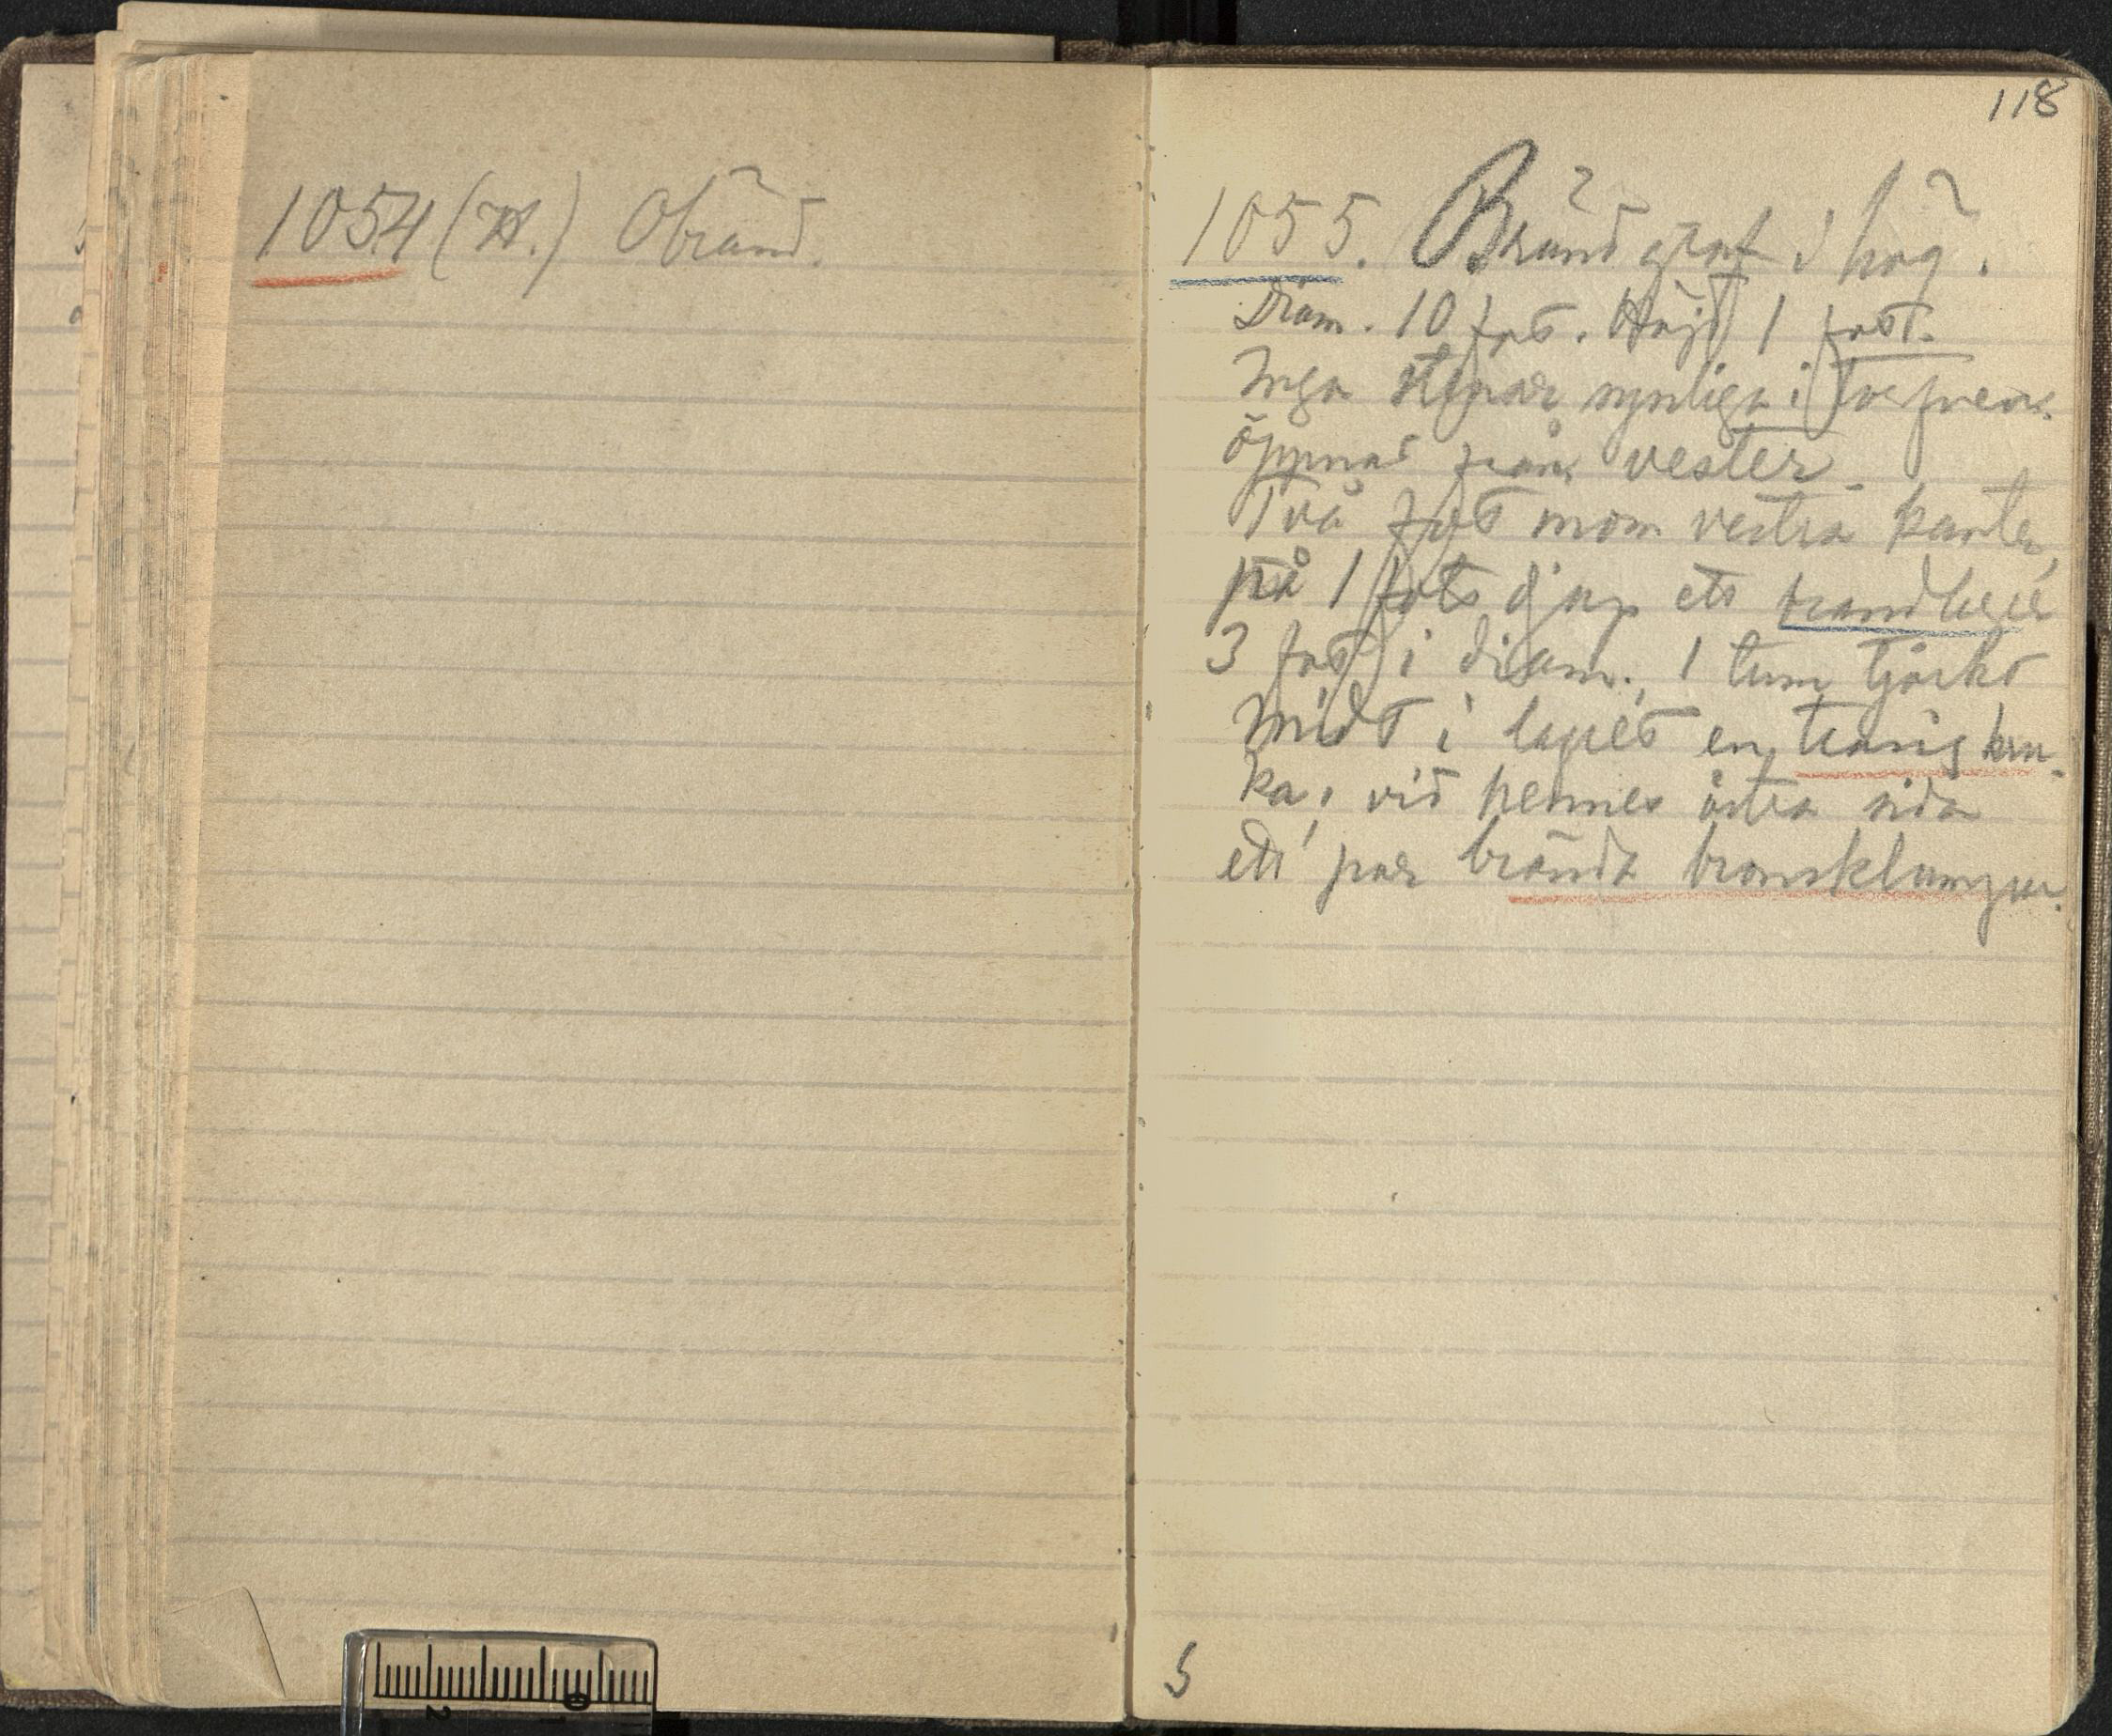 1054 (H.) Obränd.
118
1055. Bränd graf i hög.
Diam. 10 fot. Höjd 1 fot.
Inga stenar synliga i torfven.
öppnad från vester.
Två fot inom vestra kanten,
på 1 fots djup ett brandlager
3 fot i diam., 1 tum tjockt
Midt i lagret en trasig kru-
ka; vid hennes östra sida
ett par brända bronsklumpar.
S